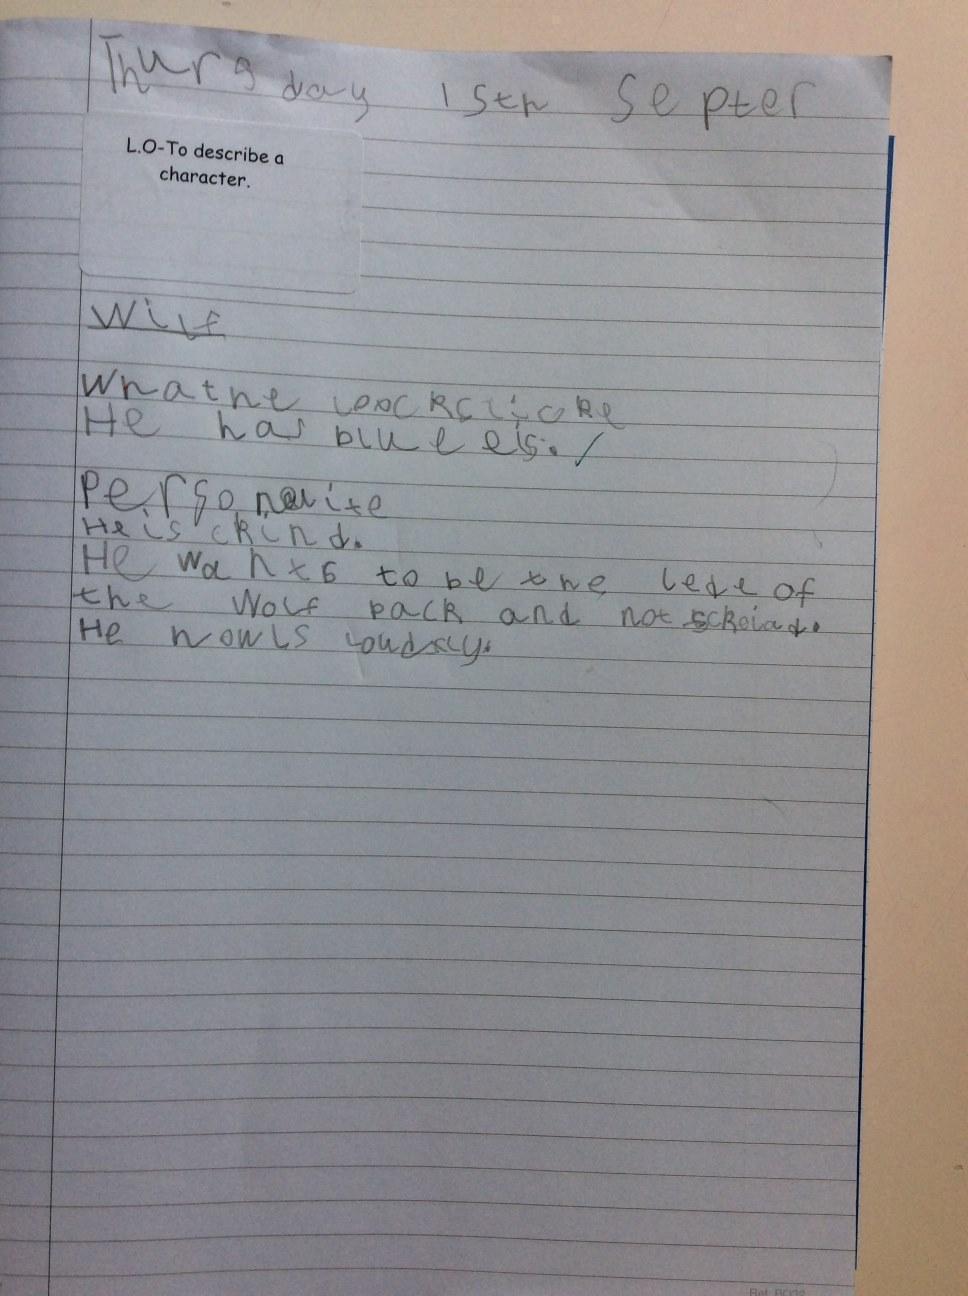 Thursday 15th Septer
L.O-To describe a
character.
Wilf
What he loocks licke
He has blue eis.
Personalite
He is ckind.
He wants to be the lede of
the Wolf pack and not sckeiad.
He howls loudly.